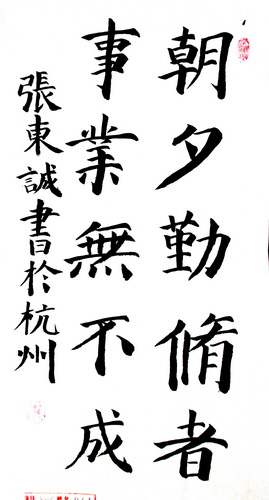 朝夕勤脩者
事業無不成
張東誠書於杭州